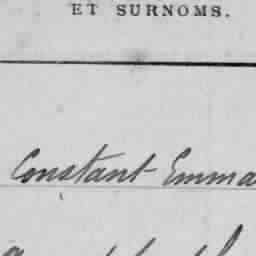 ET SURNOMS.
Constant Emma